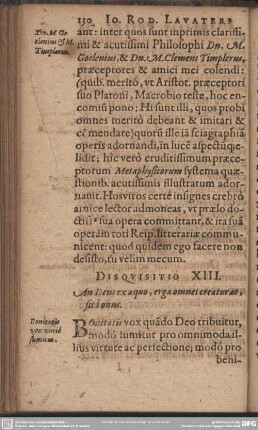 130 IO. ROD. LAVATERI
Dn. M Go-
clenius & M.
Timplerus.
ant: inter quos sunt inprimis clarissi-
mi & acutissimi Philosophi Dn. M.
Goclenius, & Dn. M. Clemens Timplerus,
præceptores & amici mei colendi:
(quib. meritò, vt Aristot. præceptori
suo Platoni, Macrobio teste, hoc en-
comiũ pono: Hi sunt illi, quos probi
omnes meritò debeant & imitari &
cõmendare) quorũ ille iã sciagraphiã
operis adornandi, in lucẽ aspectúq;
elidit; hîc verò eruditissimum præce-
ptorum Metaphysicorum systema quæ-
stionib. acutissimis illustratum ador-
nauit. Hos viros certè insignes crebrò
amice lector admoneas, vt prælo do-
sua opera committant, & ita suã
operam toti Reip. litterariæ commu-
nicent: quod quidem ego facere non
desisto, tu velim mecum.
DISQVISITIO XIII.
An Deus ex æquo, erga omnes creaturas,
sit bonus.
Bonitatis
vox variè
sumitur.
Bonitatis vox quãdo Deo tribuitur,
modò sumitur pro omnimoda il-
lius virtute ac perfectione; modò pro
beni-